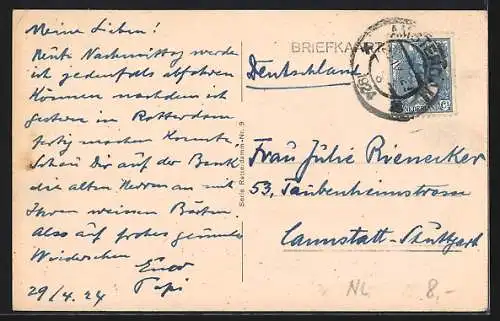 Meine Lieben!
Heute Nachmittag werde
ich jedenfalls abfahren
können nachdem ich
gestern in Rotterdam
fertig machen konnte.
Schau Dir auf der Bank
die alten Herren an mit
Ihren weissen Bärten.
Also auf frohes gesundes
Wiedersehen
Euer
Papi
29/4.24
Serie Rotterdam-Nr. 9
BRIEFKAART
Deutschland
AMSTERDAM
1924
NEDERLAND
Frau Julie Rienecker
53, Taubenheimstrasse
Cannstatt-Stuttgart
NL 8,-